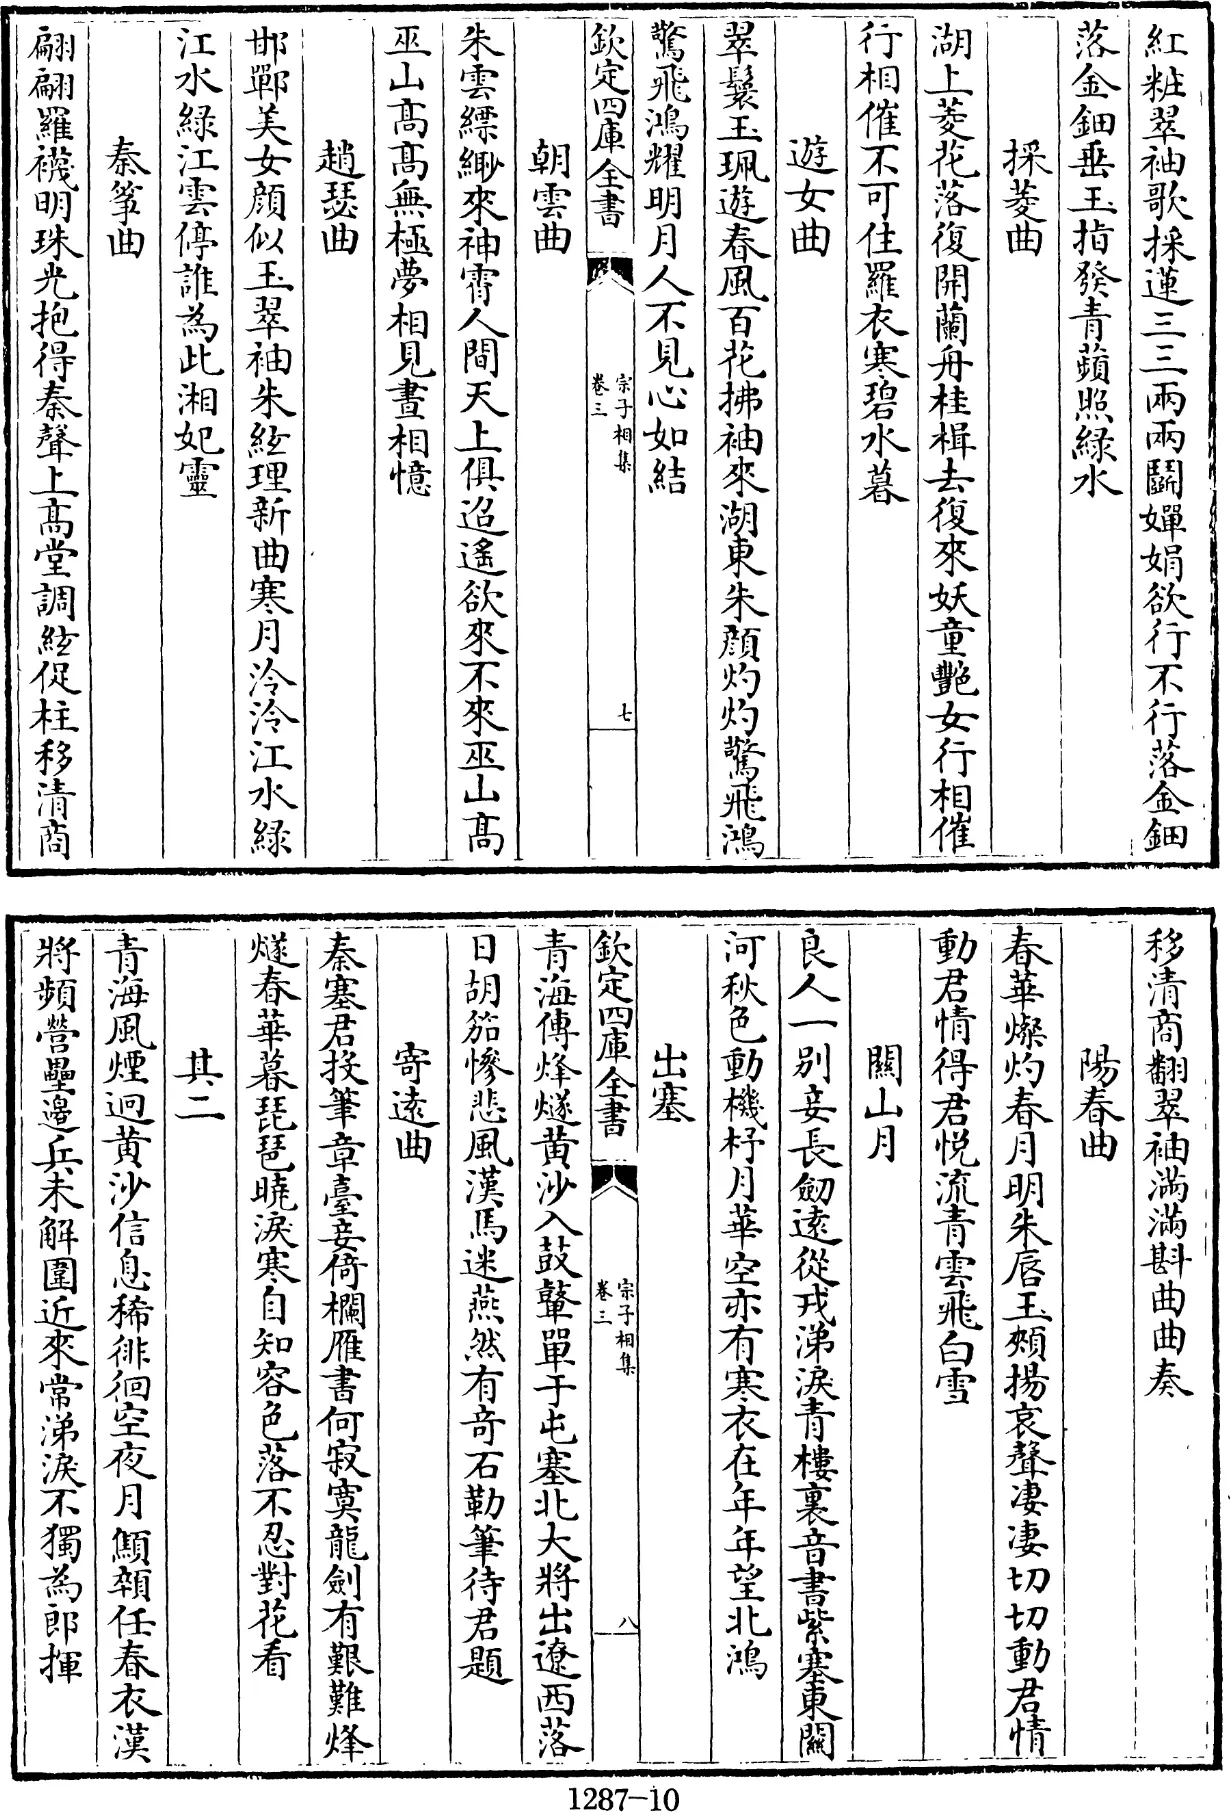 紅粧翠袖歌採蓮三三兩兩鬬嬋娟欲行不行落金鈿
落金鈿垂玉指發青蘋照綠水
採菱曲
湖上菱花落復開蘭舟桂楫去復來妖童艷女行相催
行相催不可住羅衣寒碧水暮
遊女曲
翠鬟玉珮遊春風百花拂袖來湖東朱顔灼灼驚飛鴻
驚飛鴻耀明月人不見心如結
欽定四庫全書
宗子相集
卷三
七
朝雲曲
朱雲縹緲來神霄人間天上俱迢遙欲來不來巫山髙
巫山髙髙無極夢相見晝相憶
趙瑟曲
邯鄲美女顔似玉翠袖朱絃理新曲寒月泠泠江水綠
江水綠江雲停誰為此湘妃靈
秦箏曲
翩翩羅襪明珠光抱得秦聲上髙堂調絃促柱移清商
移清商翻翠袖滿滿斟曲曲奏
陽春曲
春華燦灼春月明朱唇玉頰揚哀聲凄凄切切動君情
動君情得君悦流青雲飛白雪
關山月
良人一别妾長劒遠從戎涕淚青樓裏音書紫塞東關
河秋色動機杼月華空亦有寒衣在年年望北鴻
出塞
欽定四庫全書
宗子相集
卷三
八
青海傳烽燧黄沙入鼓鼙單于屯塞北大將出遼西落
日胡笳慘悲風漢馬迷燕然有竒石勒筆待君題
寄遠曲
秦塞君投筆章臺妾倚欄雁書何寂寞龍劍有艱難烽
燧春華暮琵琶曉淚寒自知容色落不忍對花看
其二
青海風煙迥黄沙信息稀徘徊空夜月顦顇任春衣漢
將頻營壘邊兵未解圍近來常涕淚不獨為郎揮
1287-10